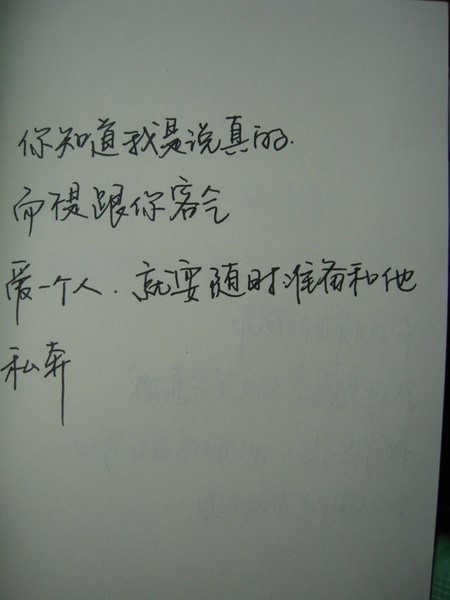 你知道我是说真的.
而不是跟你客气
爱一个人.就要随时准备和他
私奔